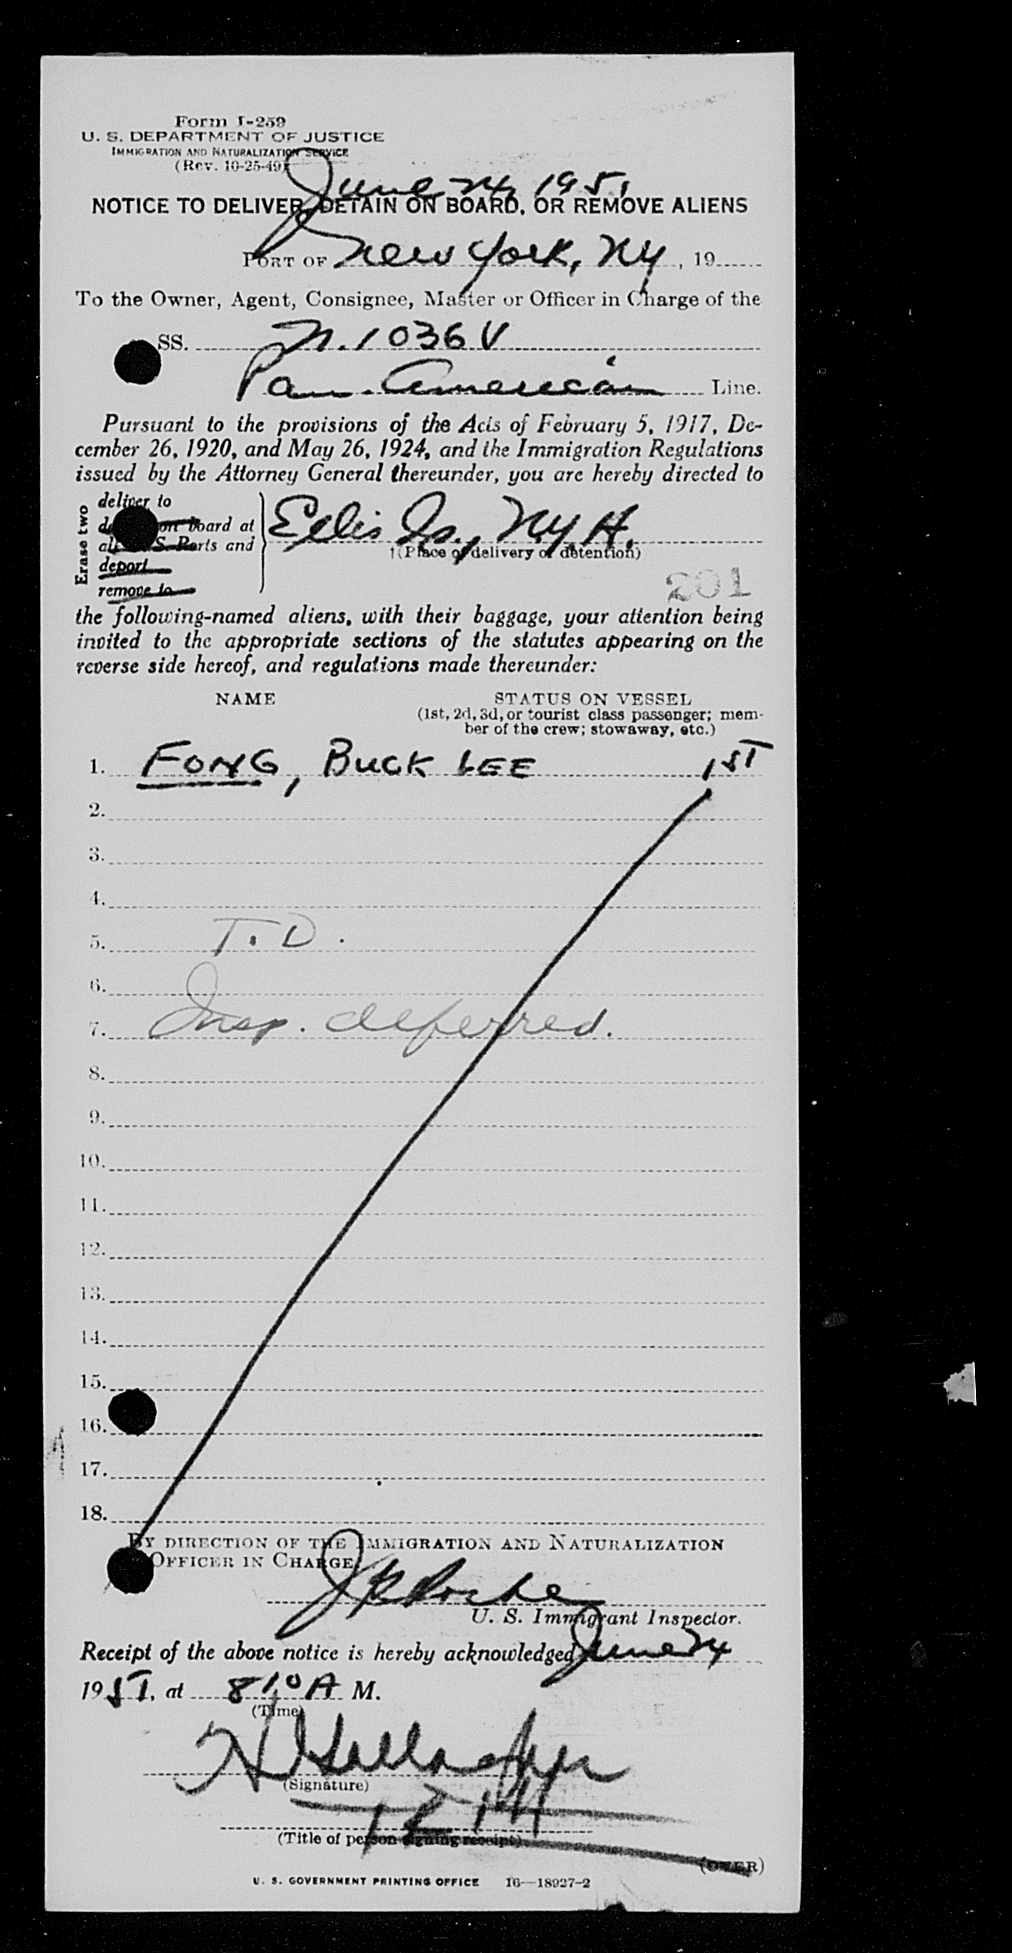 Form I-259
U. S. DEPARTMENT OF JUSTICE
IMMIGRATION AND NATURALIZATION SERVICE
(Rev. 10-25-49)
June 24, 1951
NOTICE TO DELIVER, DETAIN ON BOARD, OR REMOVE ALIENS
PORT OF New York, NY, 19
To the Owner, Agent, Consignee, Master or Officer in Charge of the
SS. N. 1036 V
Pan. American Line.
Pursuant to the provisions of the Acts of February 5, 1917, De-
cember 26, 1920, and May 26, 1924, and the Immigration Regulations
issued by the Attorney General thereunder, you are hereby directed to
Erase two
deliver to
on board at
all U. S. Ports and
deport
remove to
Ellis Is., NY, H.
†(Place of delivery or detention)
201
the following-named aliens, with their baggage, your attention being
invited to the appropriate sections of the statutes appearing on the
reverse side hereof, and regulations made thereunder:
NAME STATUS ON VESSEL
(1st, 2d, 3d, or tourist class passenger; mem-
ber of the crew; stowaway, etc.)
1. FONG, BUCK LEE 1ST
2.
3.
4.
5. T. D.
6.
7. Insp. deferred.
8.
9.
10.
11.
12.
13.
14.
15.
16.
17.
18.
BY DIRECTION OF THE IMMIGRATION AND NATURALIZATION
OFFICER IN CHARGE.
U. S. Immigrant Inspector.
Receipt of the above notice is hereby acknowledged June 24
1951, at 810 A M.
(Time)
(Signature)
(Title of person signing receipt)
(OVER)
U. S. GOVERNMENT PRINTING OFFICE 16—18927-2